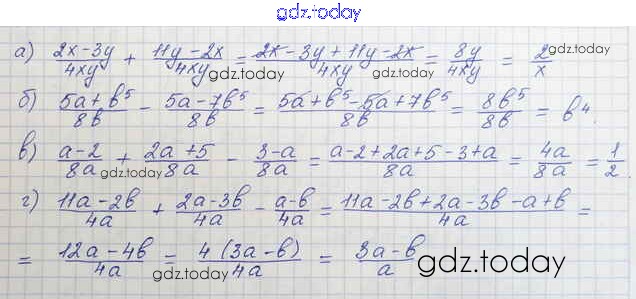 gdz.today
а) (2x-3y)/(4xy) + (11y-2x)/(4xy) = (2x-3y+11y-2x)/(4xy) = (8y)/(4xy) = 2/x
gdz.today gdz.today
б) (5a+b⁵)/(8b) - (5a-7b⁵)/(8b) = (5a+b⁵-5a+7b⁵)/(8b) = (8b⁵)/(8b) = b⁴.
в) (a-2)/(8a) + (2a+5)/(8a) - (3-a)/(8a) = (a-2+2a+5-3+a)/(8a) = (4a)/(8a) = 1/2.
gdz.today gdz.today
г) (11a-2b)/(4a) + (2a-3b)/(4a) - (a-b)/(4a) = (11a-2b+2a-3b-a+b)/(4a) =
= (12a-4b)/(4a) = (4(3a-b))/(4a) = (3a-b)/a
gdz.today gdz.today